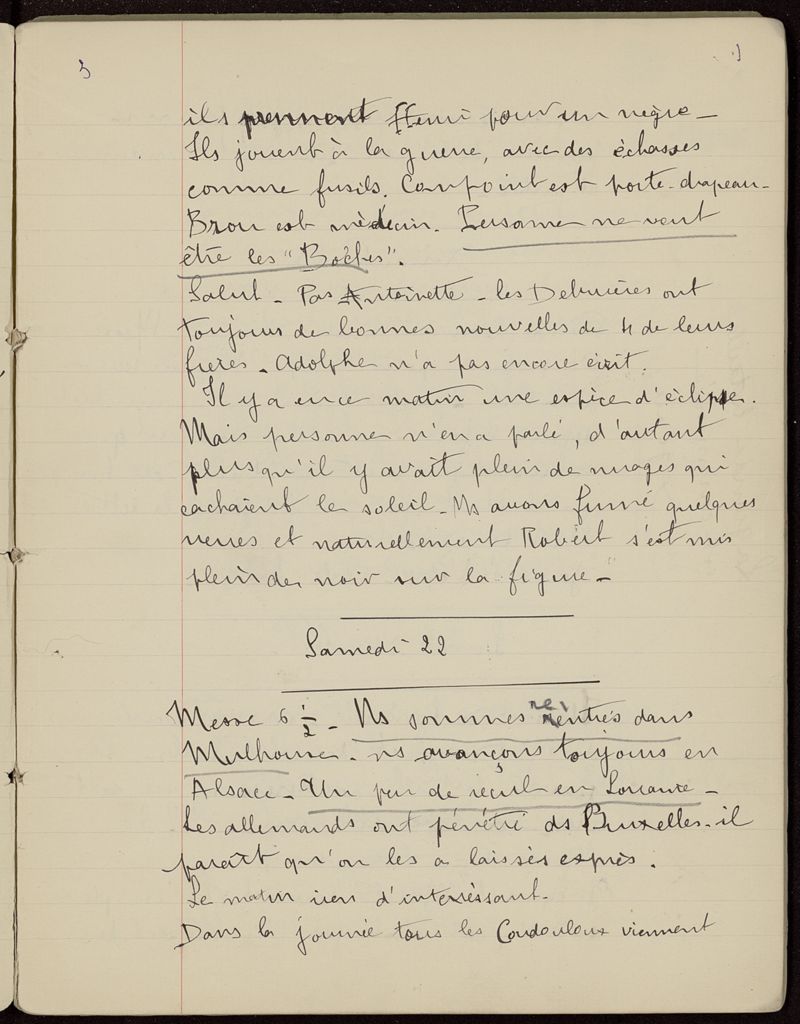 ils prennent Henri pour un nègre -
Ils jouent à la guerre, avec des échasses
comme fusils. Conpoint est porte-drapeau -
Brou est médecin. Personne ne veut
être les "Boches".
Salut - Pas Antoinette - les Debruères ont
toujours de bonnes nouvelles de 4 de leurs
frères - Adolphe n'a pas encore écrit.
Il y a eu ce matin une espèce d'éclipse.
Mais personne n'en a parlé, d'autant
plus qu'il y avait plein de nuages qui
cachaient le soleil - Ns avons fumé quelques
verres et naturellement Robert s'est mis
plein de noir sur la figure -
Samedi 22
Messe 6 1/2 - Ns sommes rentrés dans
Mulhouse - ns avançons toujours en
Alsace - Un peu de recul en Lorraine -
Les allemands ont pénétré ds Bruxelles - il
paraît qu'on les a laissés exprès.
Le matin rien d'interéssant.
Dans la journée tous les Coudouloux viennent